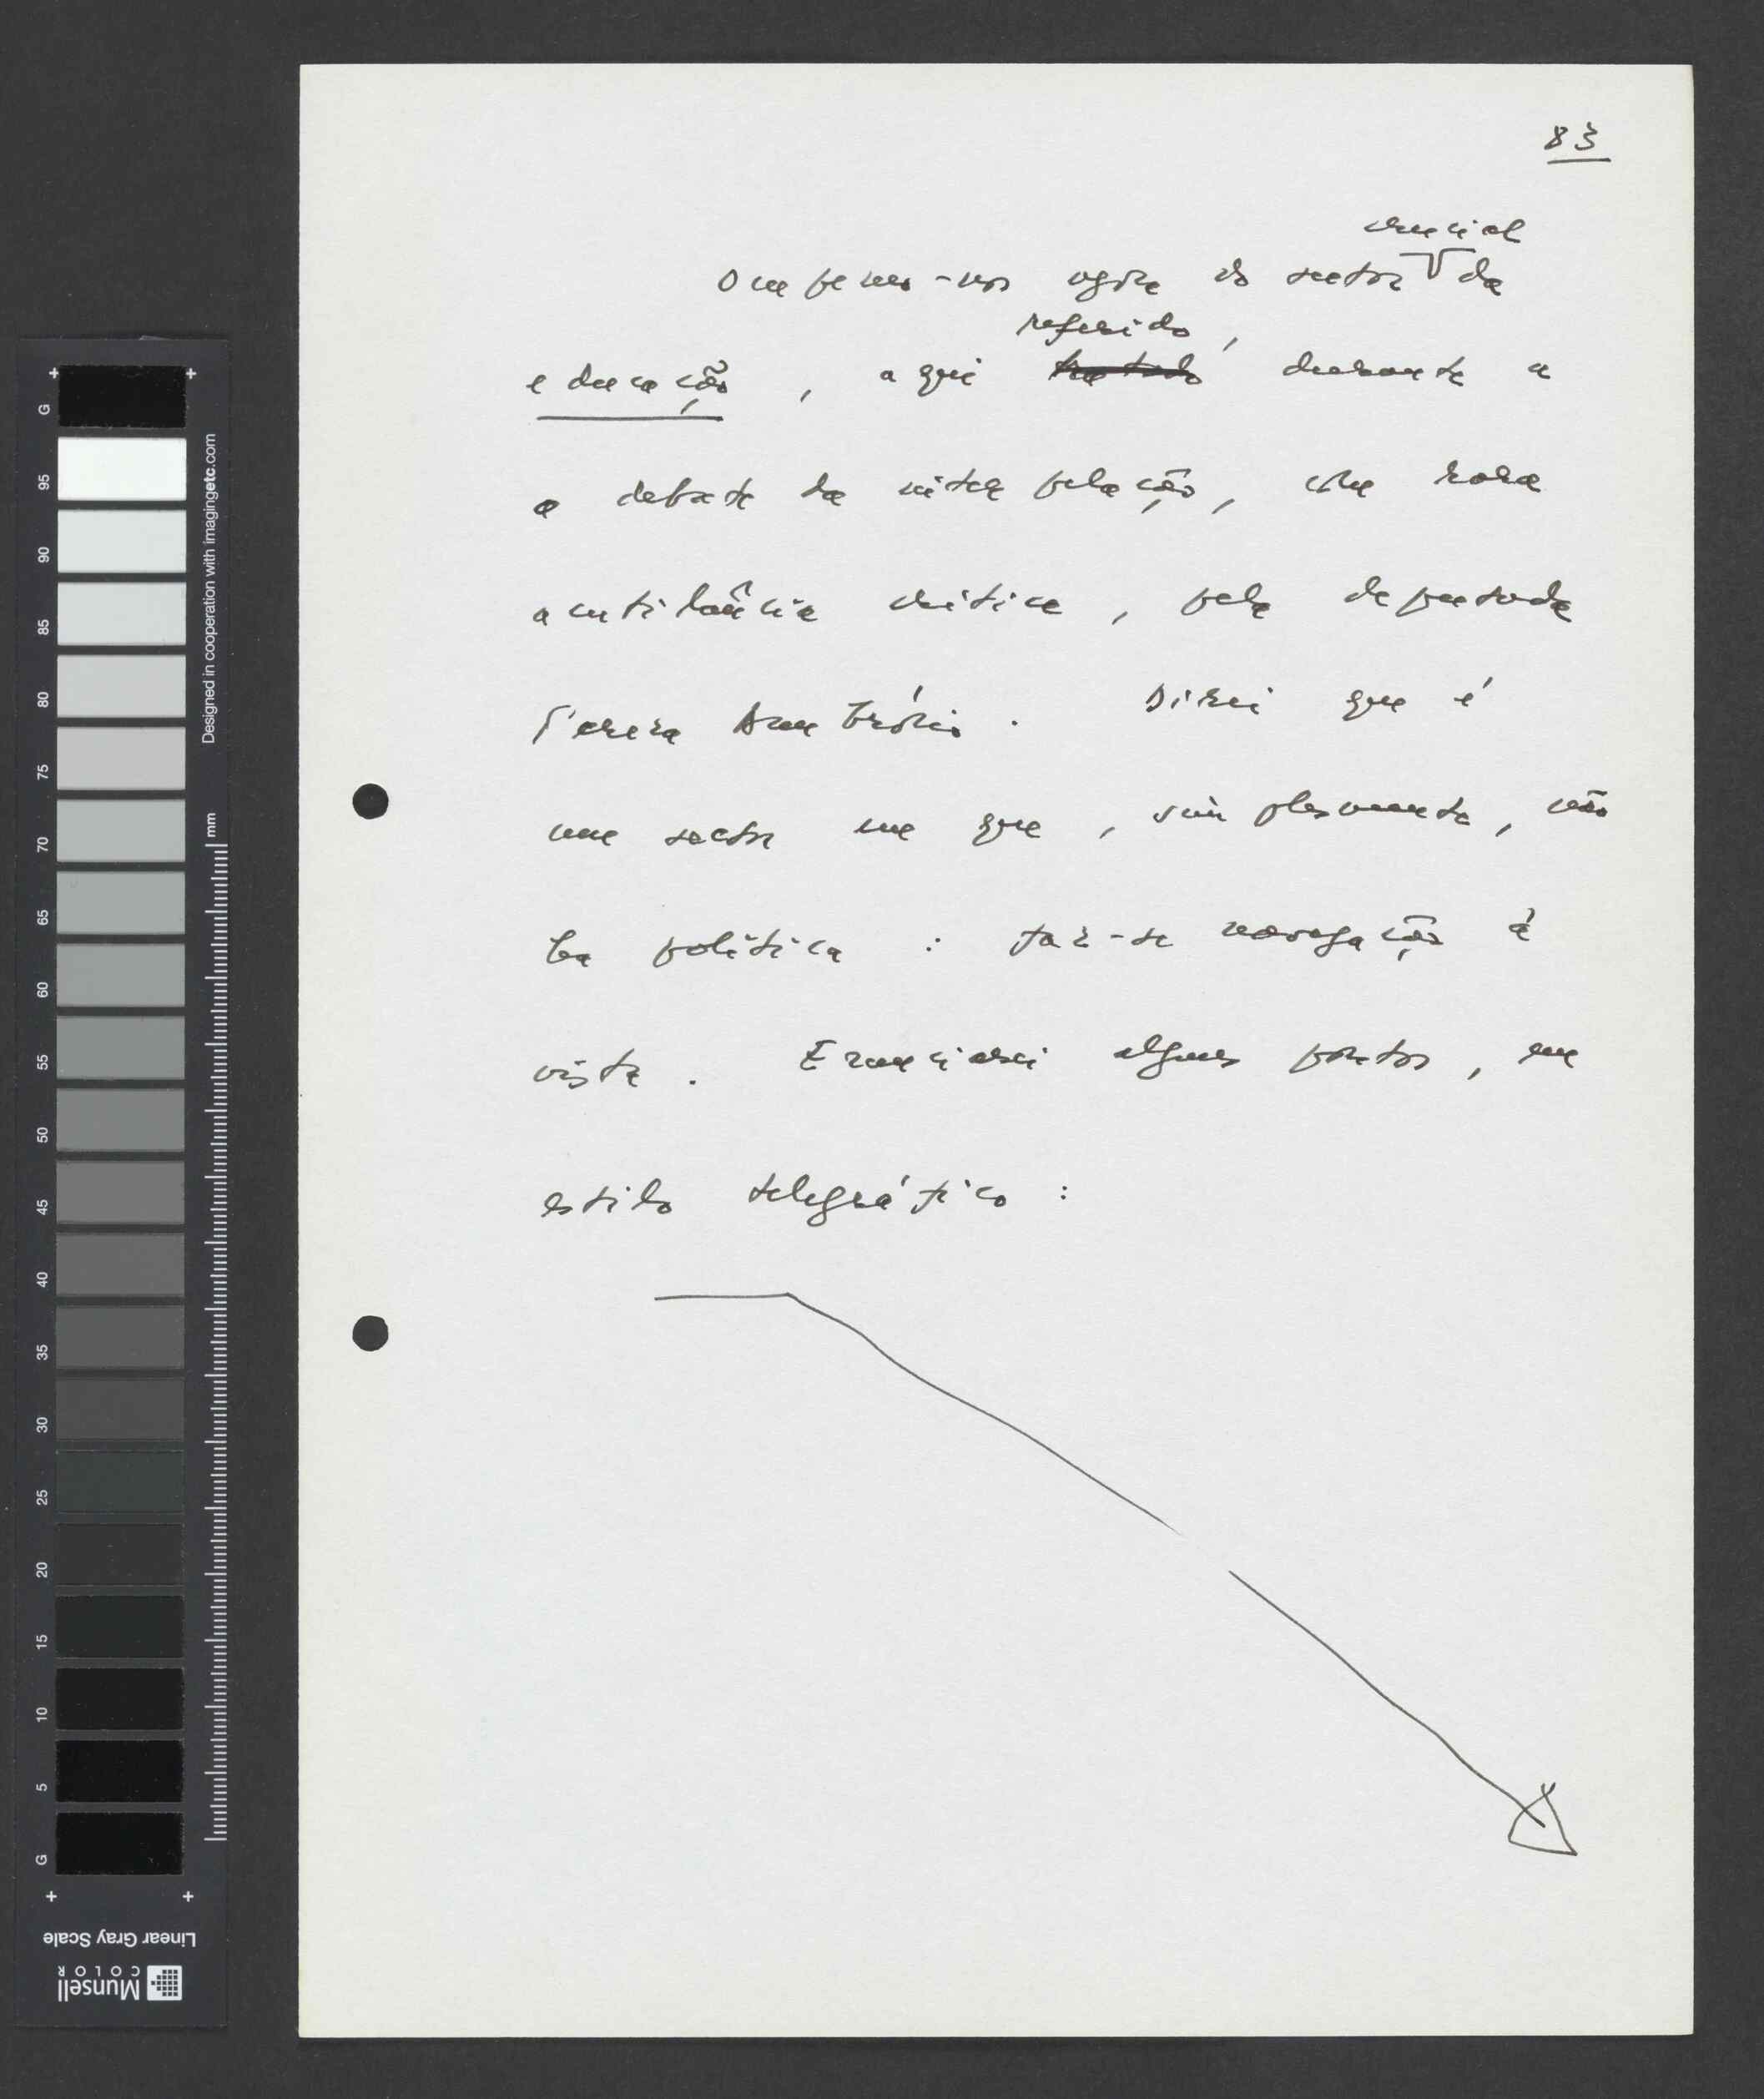 83
crucial
Ocupemo-nos agora do sector da
referido,
educação, aqui tratado durante a
o debate da interpelação, com rara
acutilância crítica, pela deputada
Teresa Ambrósio. Direi que é
um sector em que, simplesmente, não
há política: faz-se navegação à
vista. Enunciarei alguns pontos, em
estilo telegráfico:
Designed in cooperation with imagingetc.com
mm
G
95
90
85
80
75
70
65
60
55
50
45
40
35
30
25
20
15
10
5
G
Linear Gray Scale
Munsell
COLOR